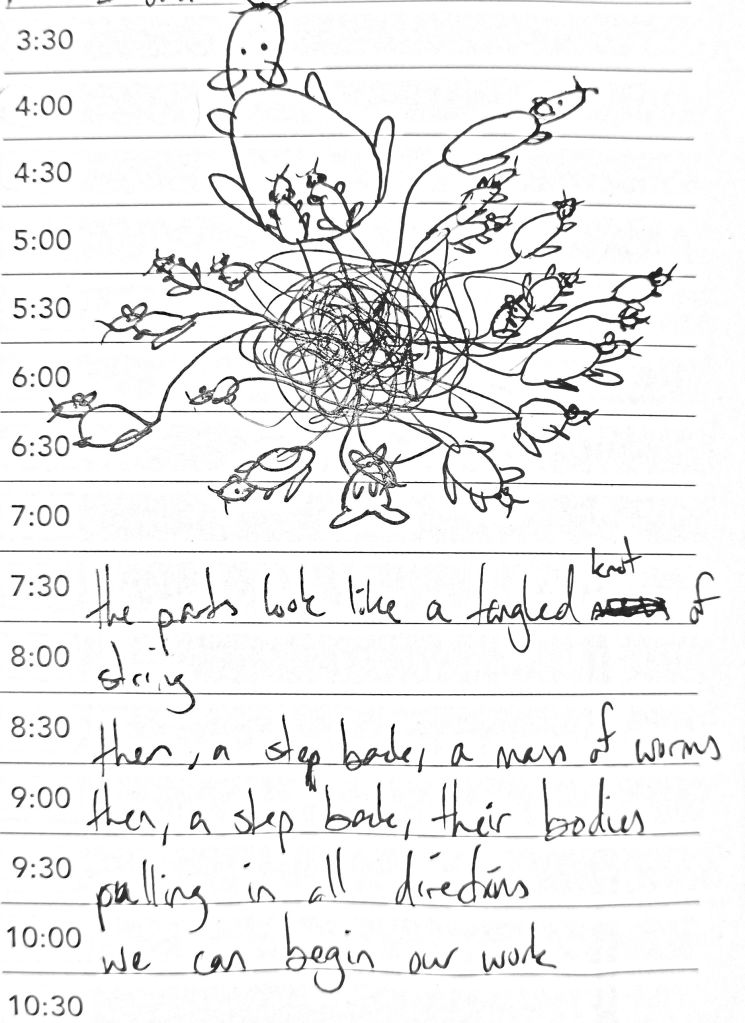 3:30
4:00
4:30
5:00
5:30
6:00
6:30
7:00
knot
7:30 the parts look like a tangled of
8:00 string
8:30 then, a step back, a mass of worms
9:00 then, a step back, their bodies
9:30 pulling in all directions
10:00 we can begin our work
10:30